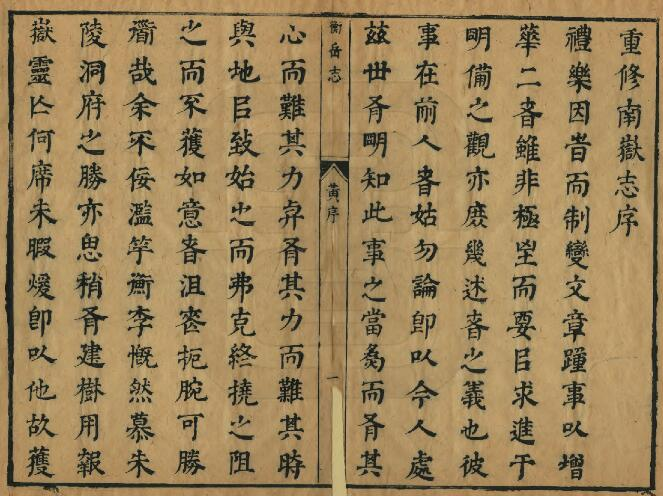 重修南嶽志序
禮樂因昔而制變文章踵事以增
華二者雖非極至而要㠯求進于
明備之觀亦庶幾述者之義也彼
事在前人者姑勿論即以今人處
兹世有明知此事之當為而有其
衡岳志
黃序
一
心而難其力弁有其力而難其時
與地㠯致始之而弗克終撓之阻
之而不獲如意者沮喪扼腕可勝
衟哉余不佞濫竽衡李慨然慕朱
陵洞府之勝亦思稍有建樹用報
嶽靈亾何席未暇煖即以他故獲